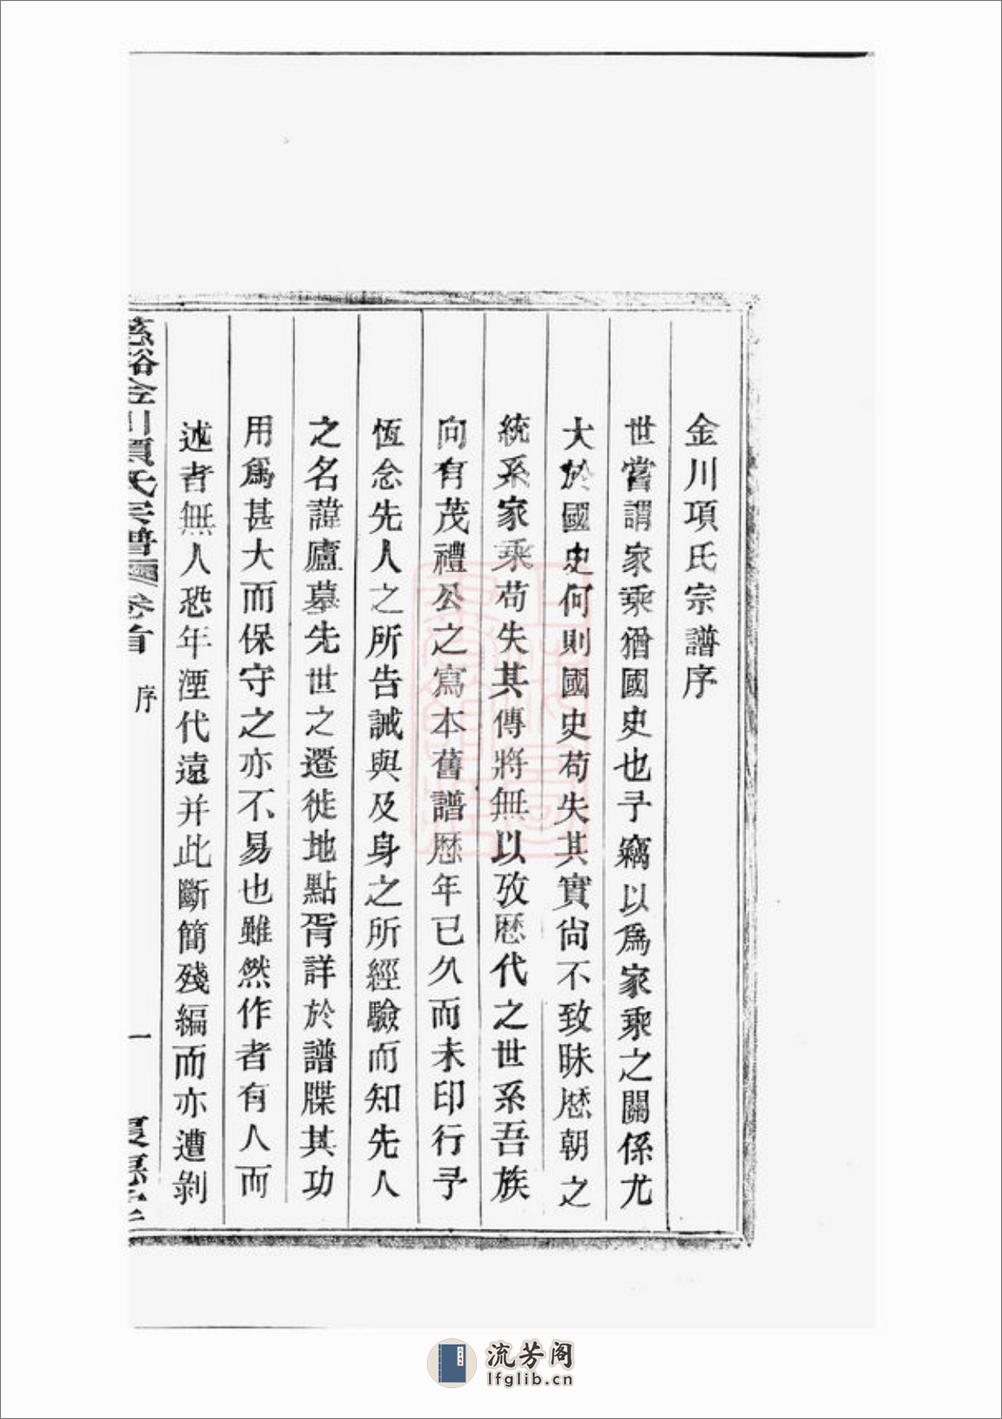 金川項氏宗譜序
世嘗謂家乘猶國史也予竊以爲家乘之關係尤
大於國史何則國史苟失其實尙不致昧歷朝之
統系家乘苟失其傳將無以攷歷代之世系吾族
向有茂禮公之寫本舊譜歷年已久而未印行予
恆念先人之所告誡與及身之所經驗而知先人
之名諱廬墓先世之遷徙地點胥詳於譜牒其功
用爲甚大而保守之亦不易也雖然作者有人而
述者無人恐年湮代遠并此斷簡殘編而亦遭剝
慈谿金川項氏宗譜 卷首 序 一
流芳阁
lfglib.cn